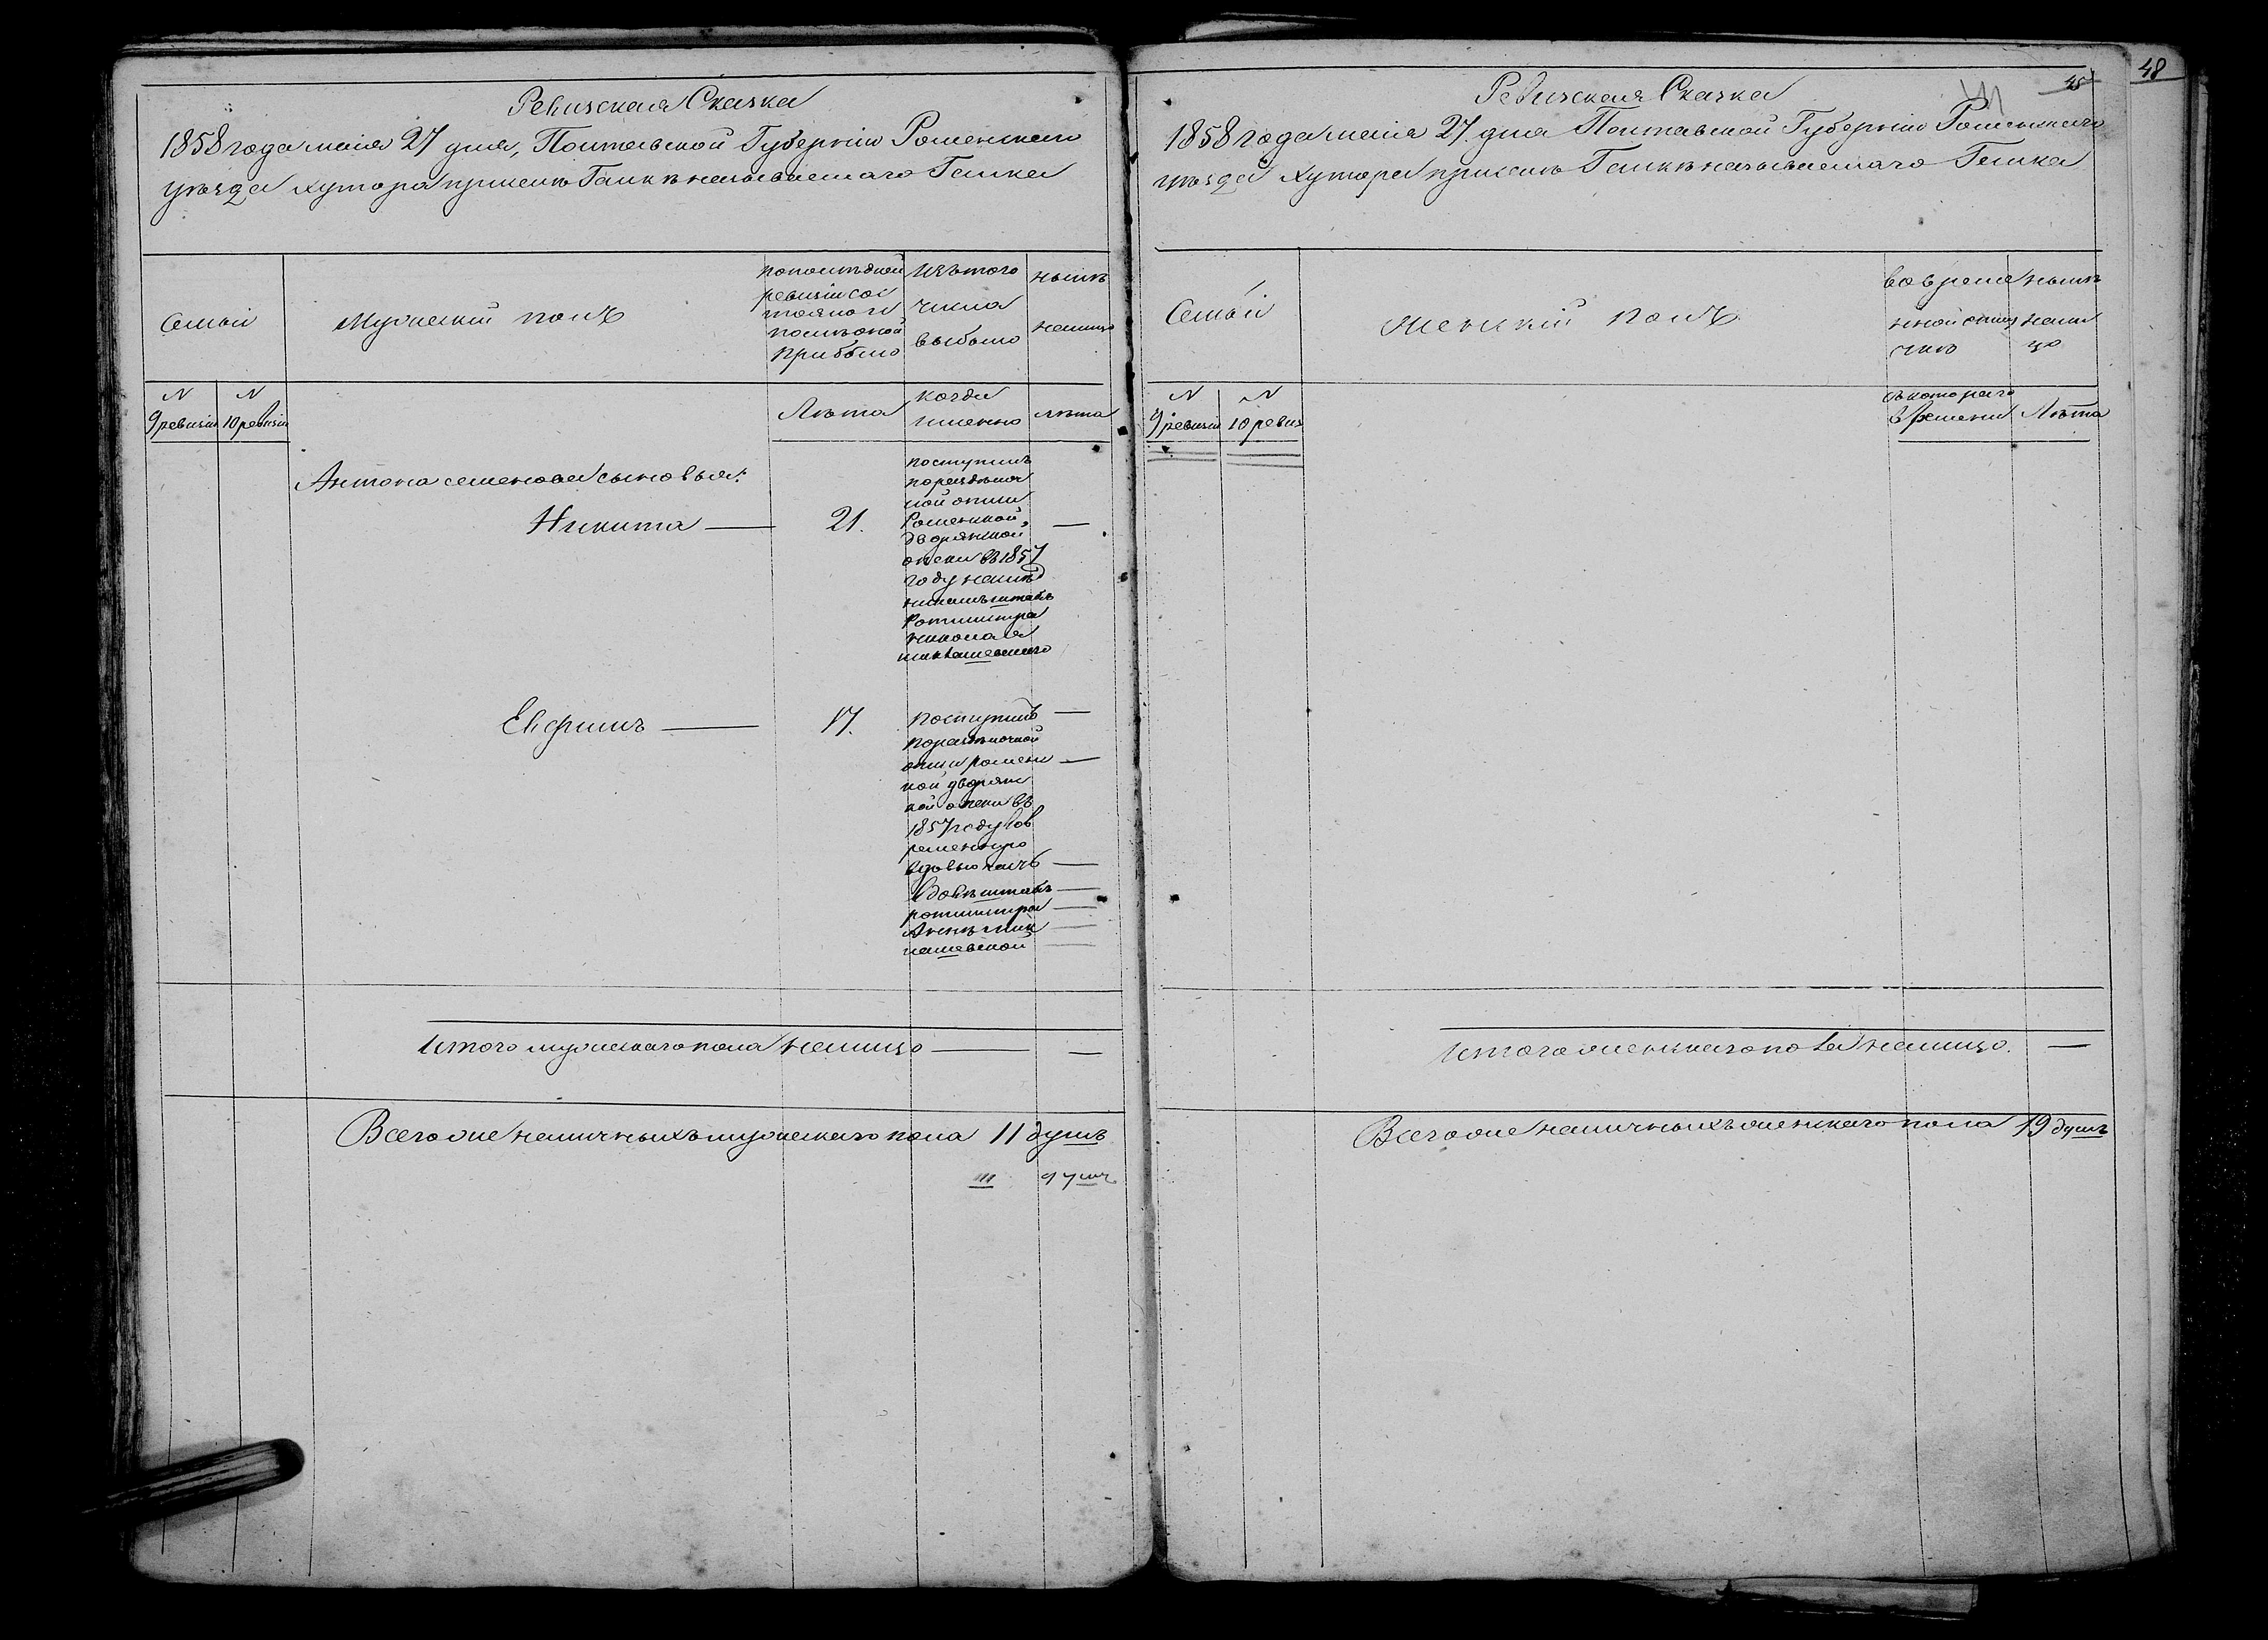 Ревизская Сказка
1858 года маія 27 дня, Полтавской Губерніи Роменскаго
уѣзда хутора при селѣ называемаго
Семьи
Мужескій полъ
по последней
ревизіи сос
тояло и
послѣ оной
прибыло
изъ того
числа
выбыло
нынѣ
на лицо
N
9 ревизіи
N
10 ревизіи
Лѣта
когда
именно
лѣта
Антона Семенова сыновья:
Никита — 21. —
поступилъ
по раздѣлоч
ной описи
Роменской
дворянской
опеки въ 1857
году наслѣд
никамъ штабъ
Ротмистра
Николая
Евфимъ — 17.
поступилъ —
по раздѣлочной
описи ромен —
кой дворян
кой опеки въ
1857 году во в
ременную
—
вдовѣ штабъ —
ротмистра —
Аннѣ —
—
Итого мужескаго пола на лицо — —
Всего же наличныхъ мужескаго пола 11 душъ
48
Ревизская Сказка
45
1858 года маія 27 дня Полтавской Губерніи Роменскаго
уѣзда Хутора при селѣ называемаго
Семьи
Женскій полъ
во време
нной отлу
чкѣ
нынѣ
на ли
цо
N
9 ревизіи
N
10 ревиз
съ котораго
времени
Лѣта
Итого женскаго пола на лицо. —
Всего же наличныхъ женскаго пола 19 душъ